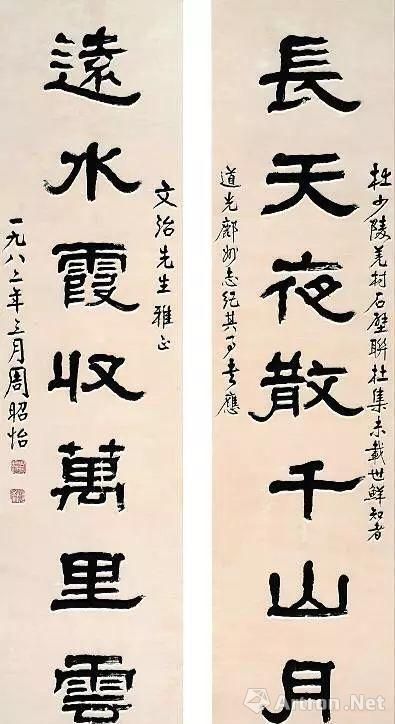 杜少陵羌村石壁聯杜集未載世鮮知者
長天夜散千山月
道光鄜州志紀其事書應
文治先生雅正
遠水霞收萬里雲
一九八二年三月周昭怡
Artron.Net